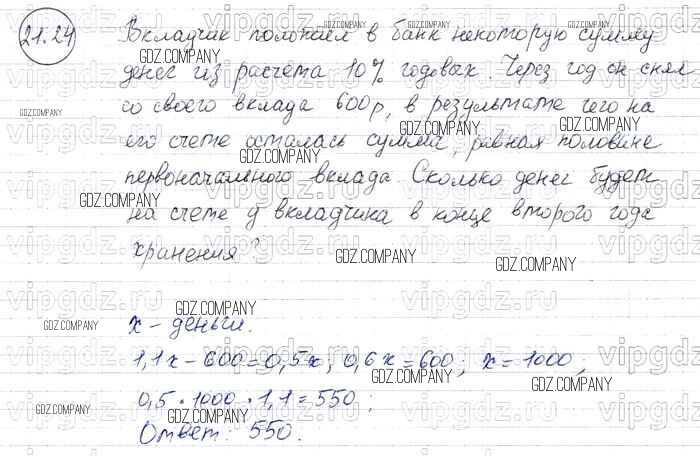 21.24
Вкладчик положил в банк некоторую сумму
денег из расчёта 10% годовых. Через год он снял
со своего вклада 600 р, в результате чего на
его счете осталась сумма, равная половине
первоначального вклада. Сколько денег будет
на счете у вкладчика в конце второго года
хранения?
x - деньги.
1,1x - 600 = 0,5x; 0,6x = 600; x = 1000;
0,5 · 1000 · 1,1 = 550;
Ответ: 550.
GDZ.COMPANY
vipgdz.ru